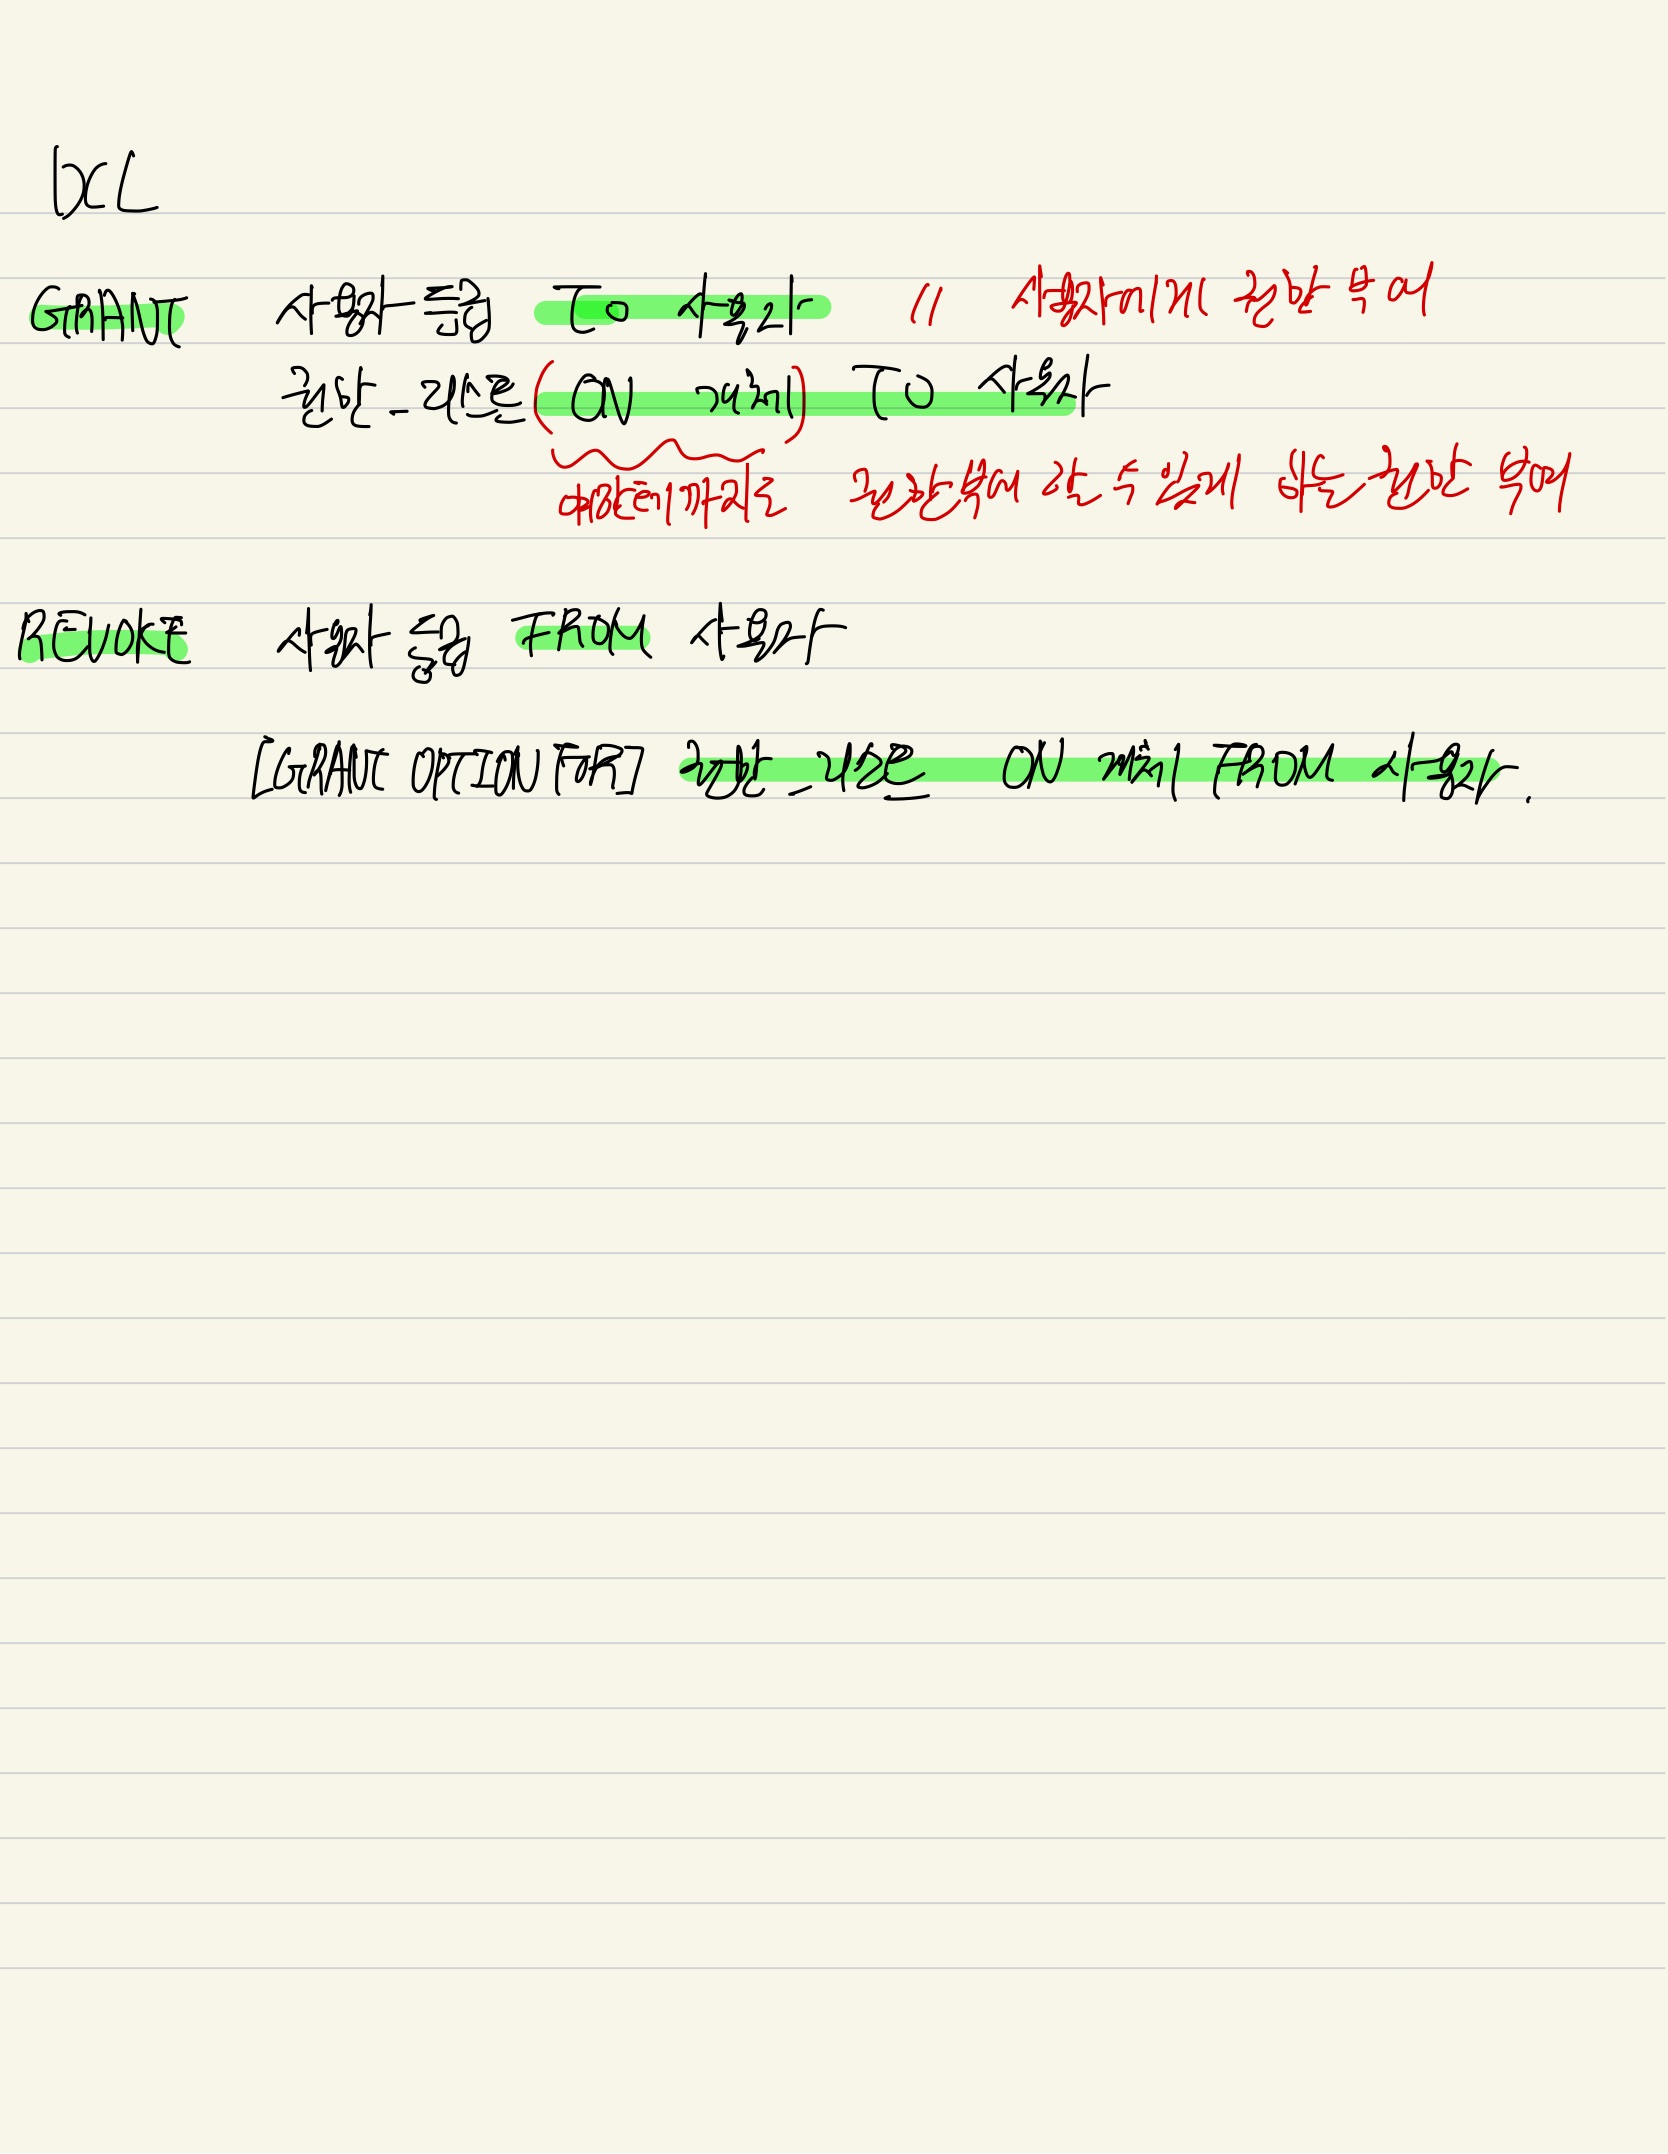 DCL
GRANT 사용자 등급 TO 사용자 // 사용자에게 권한 부여
권한_리스트 (ON 개체) TO 사용자
한테까지도 권한부여 할 수 있게 하는 권한 부여
REVOKE 사용자 등급 FROM 사용자
[GRANT OPTION FOR] 권한_리스트 ON 개체 FROM 사용자.